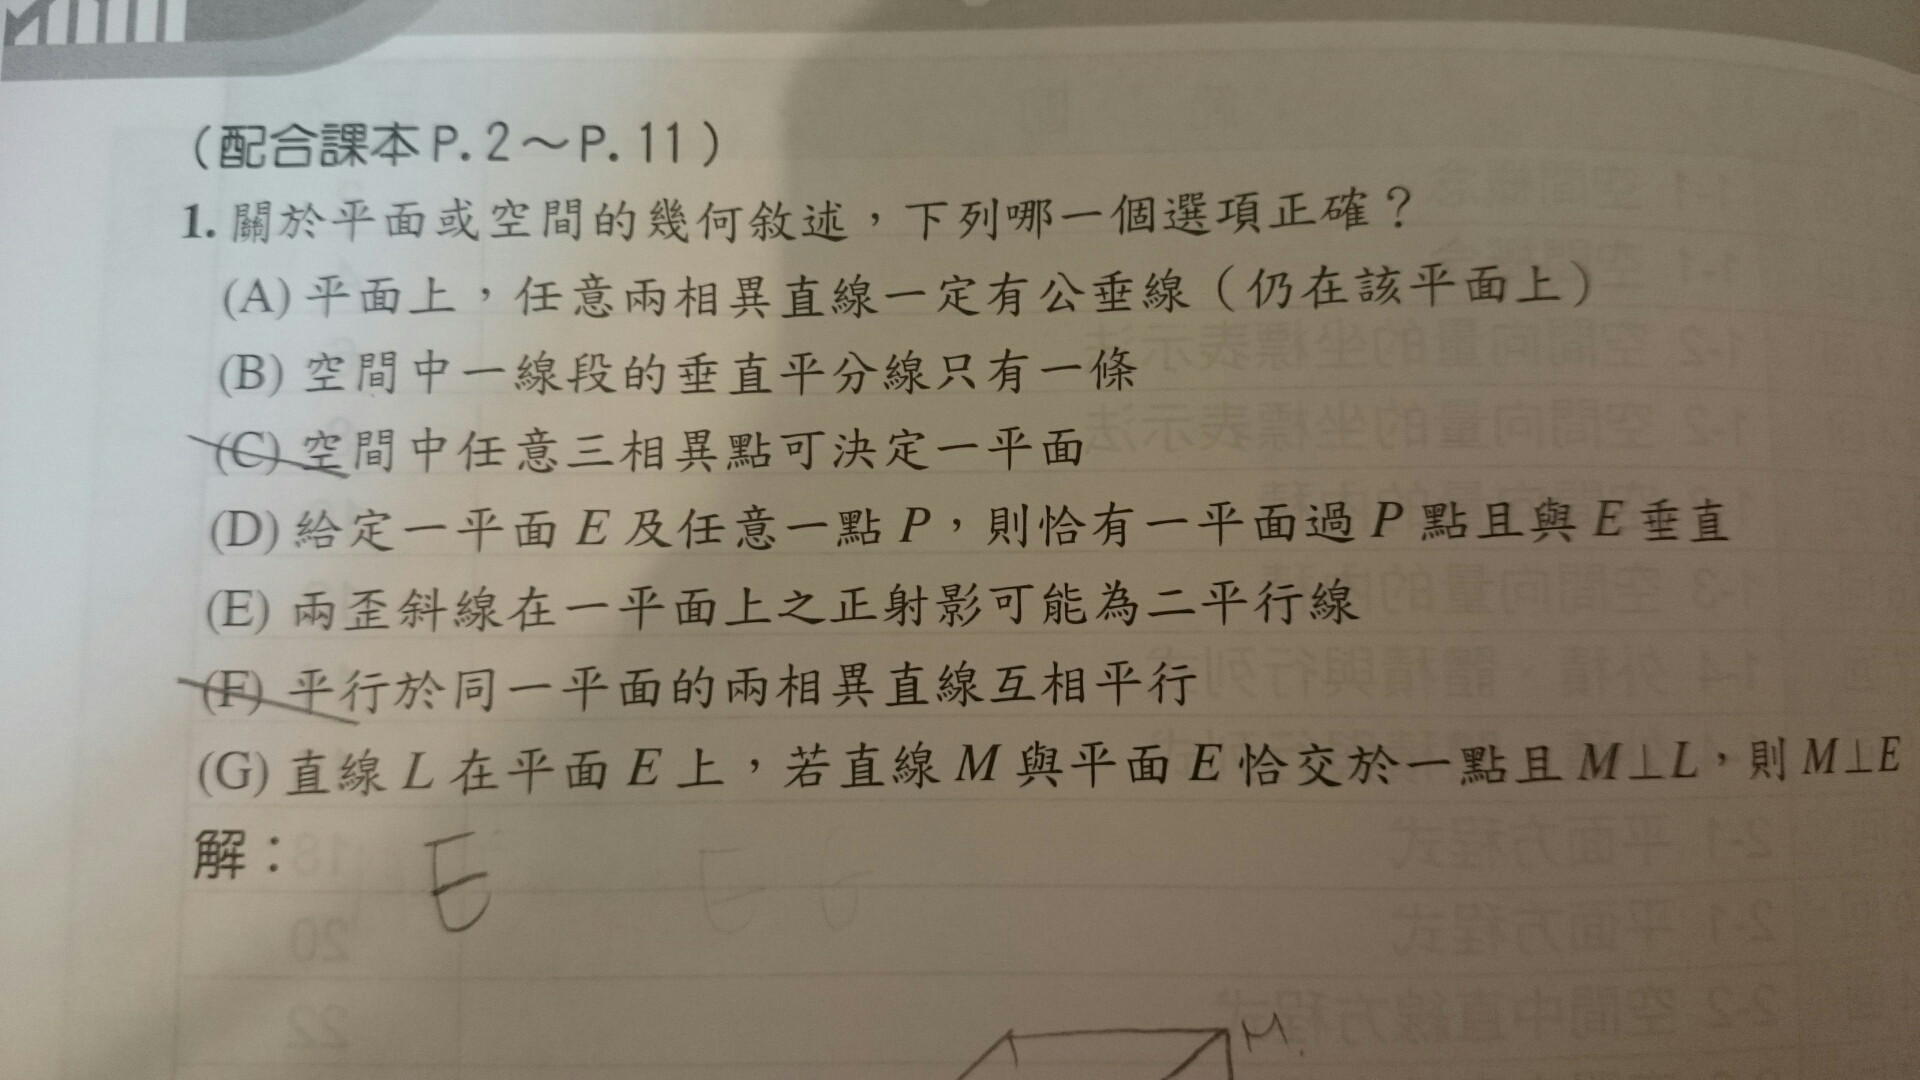 (配合課本P.2～P.11)
1.關於平面或空間的幾何敘述，下列哪一個選項正確？
(A)平面上，任意兩相異直線一定有公垂線（仍在該平面上）
(B)空間中一線段的垂直平分線只有一條
(C)空間中任意三相異點可決定一平面
(D)給定一平面E及任意一點P，則恰有一平面過P點且與E垂直
(E)兩歪斜線在一平面上之正射影可能為二平行線
(F)平行於同一平面的兩相異直線互相平行
(G)直線L在平面E上，若直線M與平面E恰交於一點且M⊥L，則M⊥E
解：
E
M